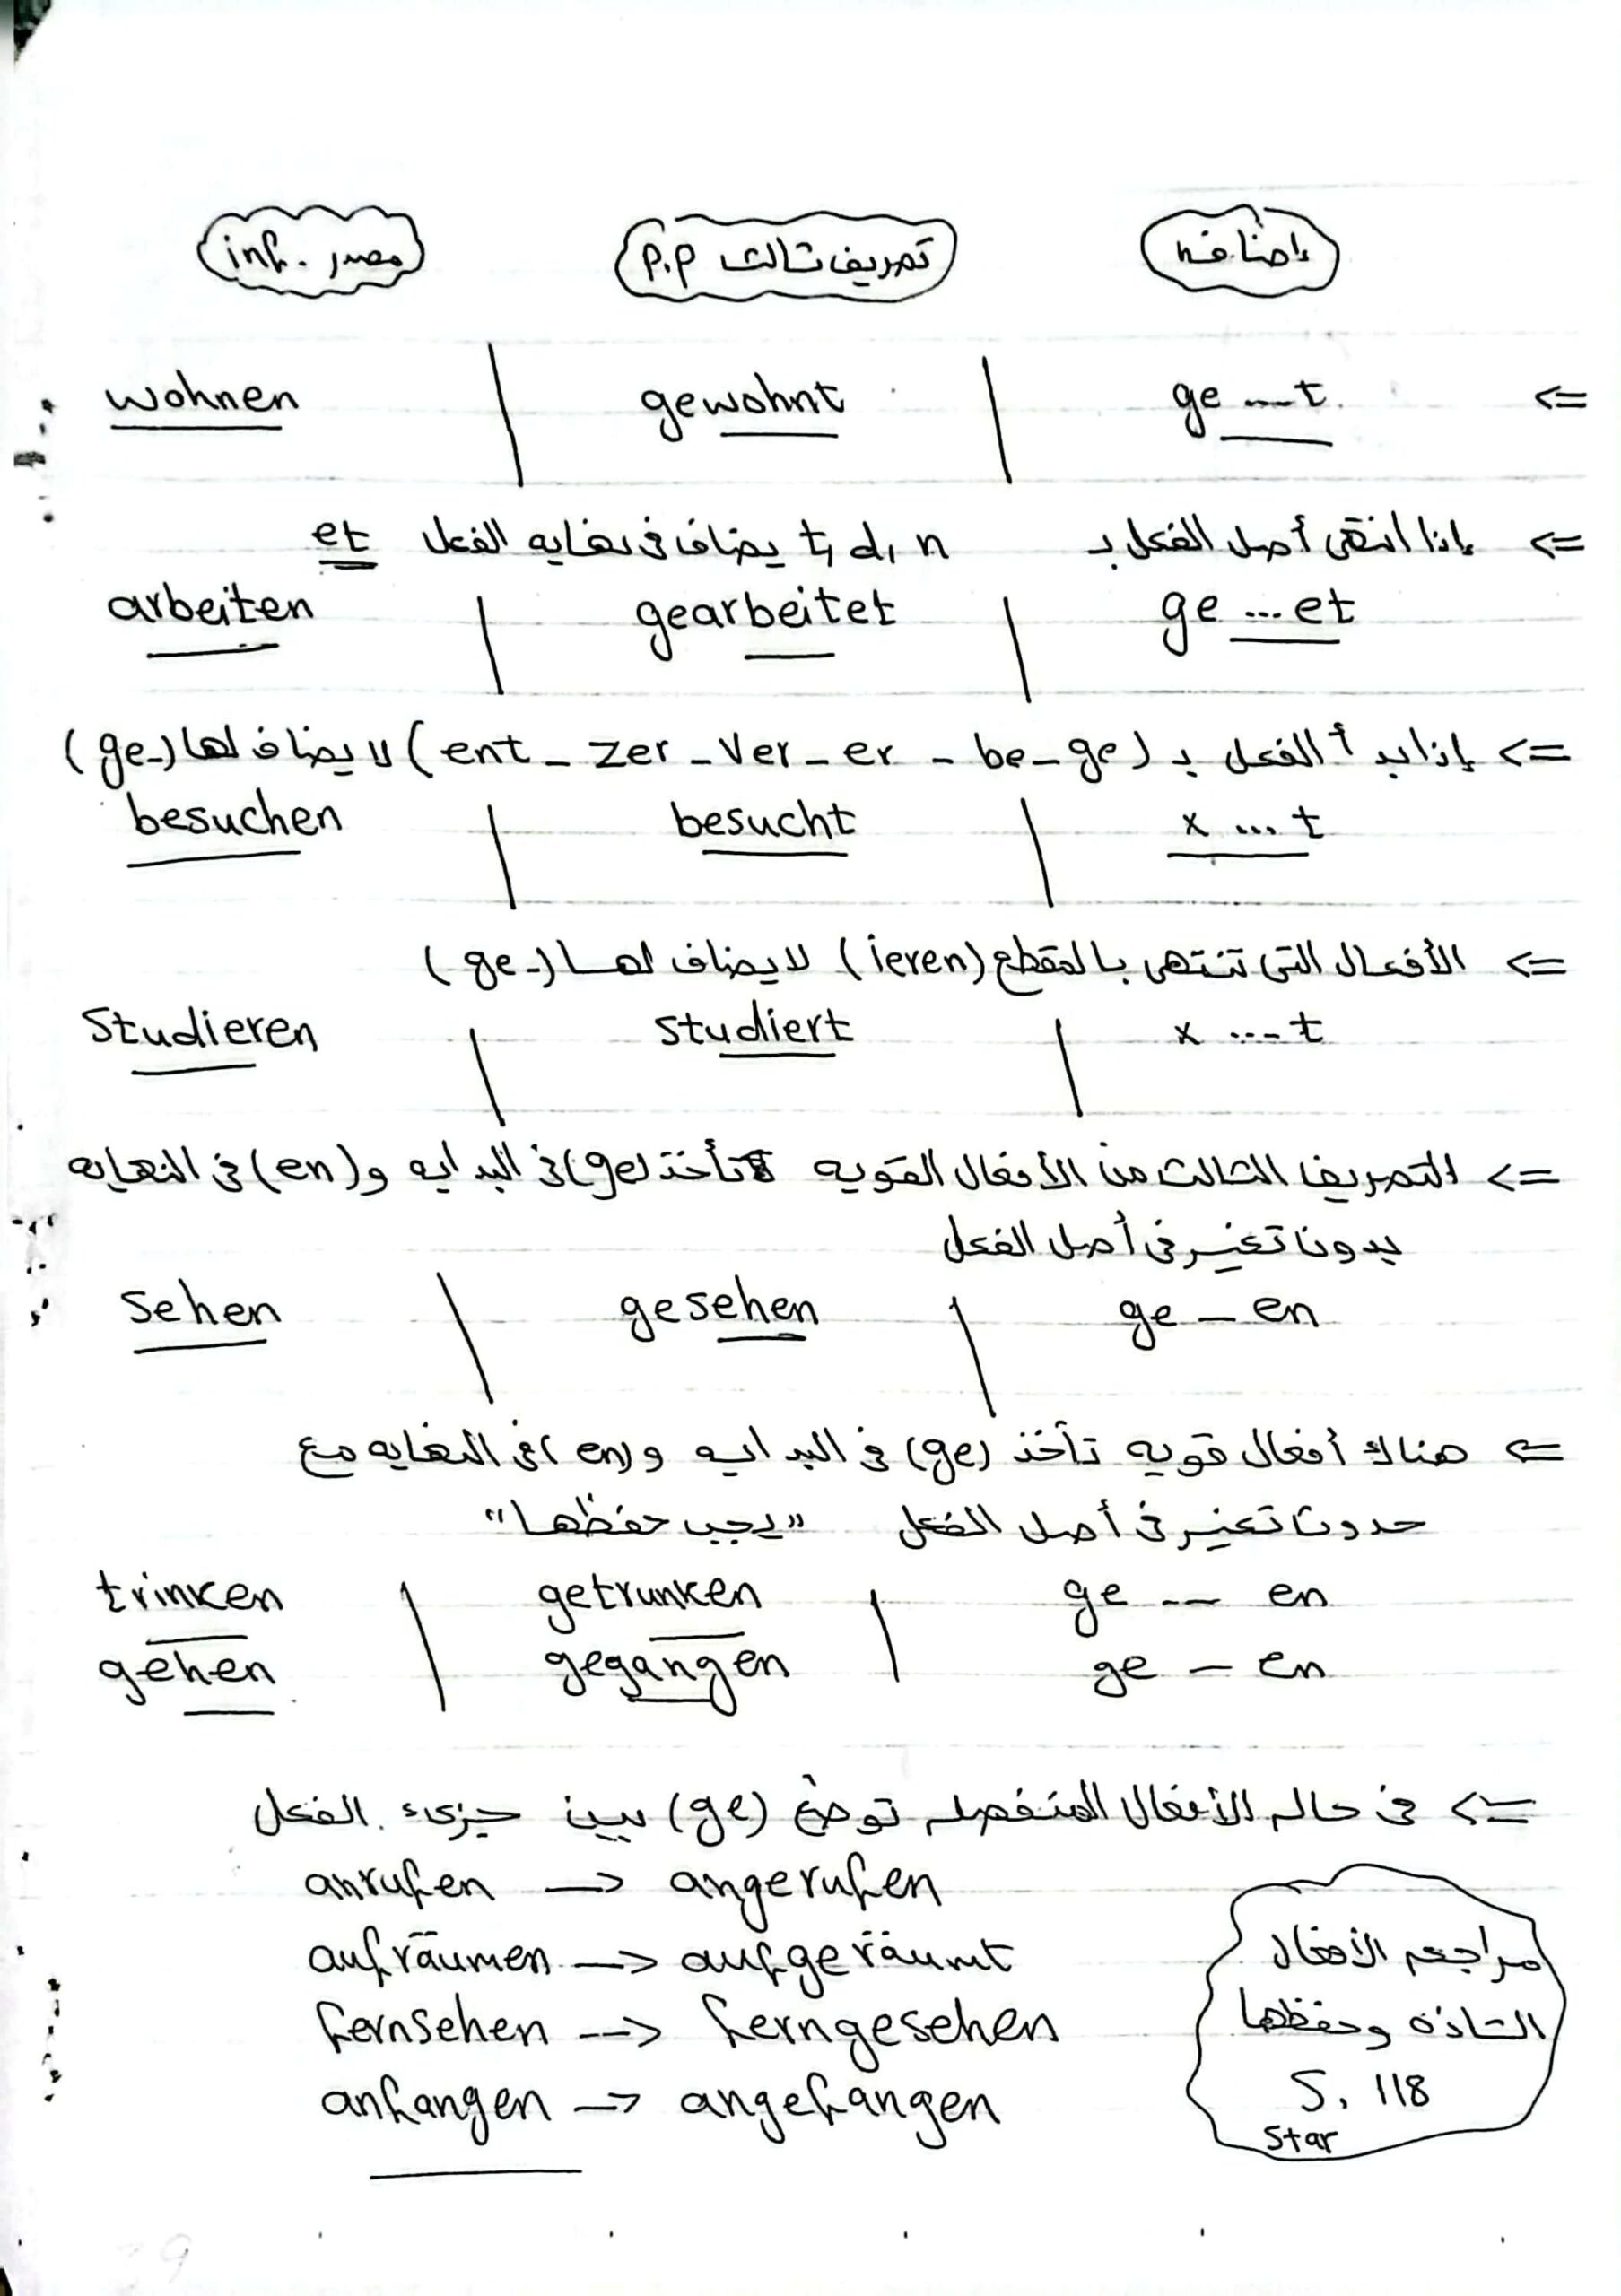 مصدر .inf | تصريف ثالث p.p | إضافة
wohnen | gewohnt | ge ---- t <=
<= إذا انتهى أصل الفعل بـ t, d, n يضاف فى نهايه الفعل et
arbeiten | gearbeitet | ge ... et
<= إذا بدأ الفعل بـ (ent - zer - ver - er - be - ge) لا يضاف لها (ge-)
besuchen | besucht | x ... t
<= الأفعال التى تنتهى بالمقطع (ieren) لا يضاف لها (ge-)
Studieren | studiert | x ---- t
<= التصريف الثالث من الأفعال القويه تأخذ (ge) فى البدايه و (en) فى النهايه
بدون تغير فى أصل الفعل
Sehen | gesehen | ge - en
<= هناك أفعال قويه تأخذ (ge) فى البدايه و (en) فى النهايه مع
حدوث تغير فى أصل الفعل "يجب حفظها"
trinken | getrunken | ge -- en
gehen | gegangen | ge - en
<= فى حاله الأفعال المنفصله توضع (ge) بين جزىء الفعل
anrufen -> angerufen
aufräumen -> aufgeräumt
fernsehen --> ferngesehen
anfangen -> angefangen
مراجعه الأفعال
الشاذه وحفظها
S. 118
Star